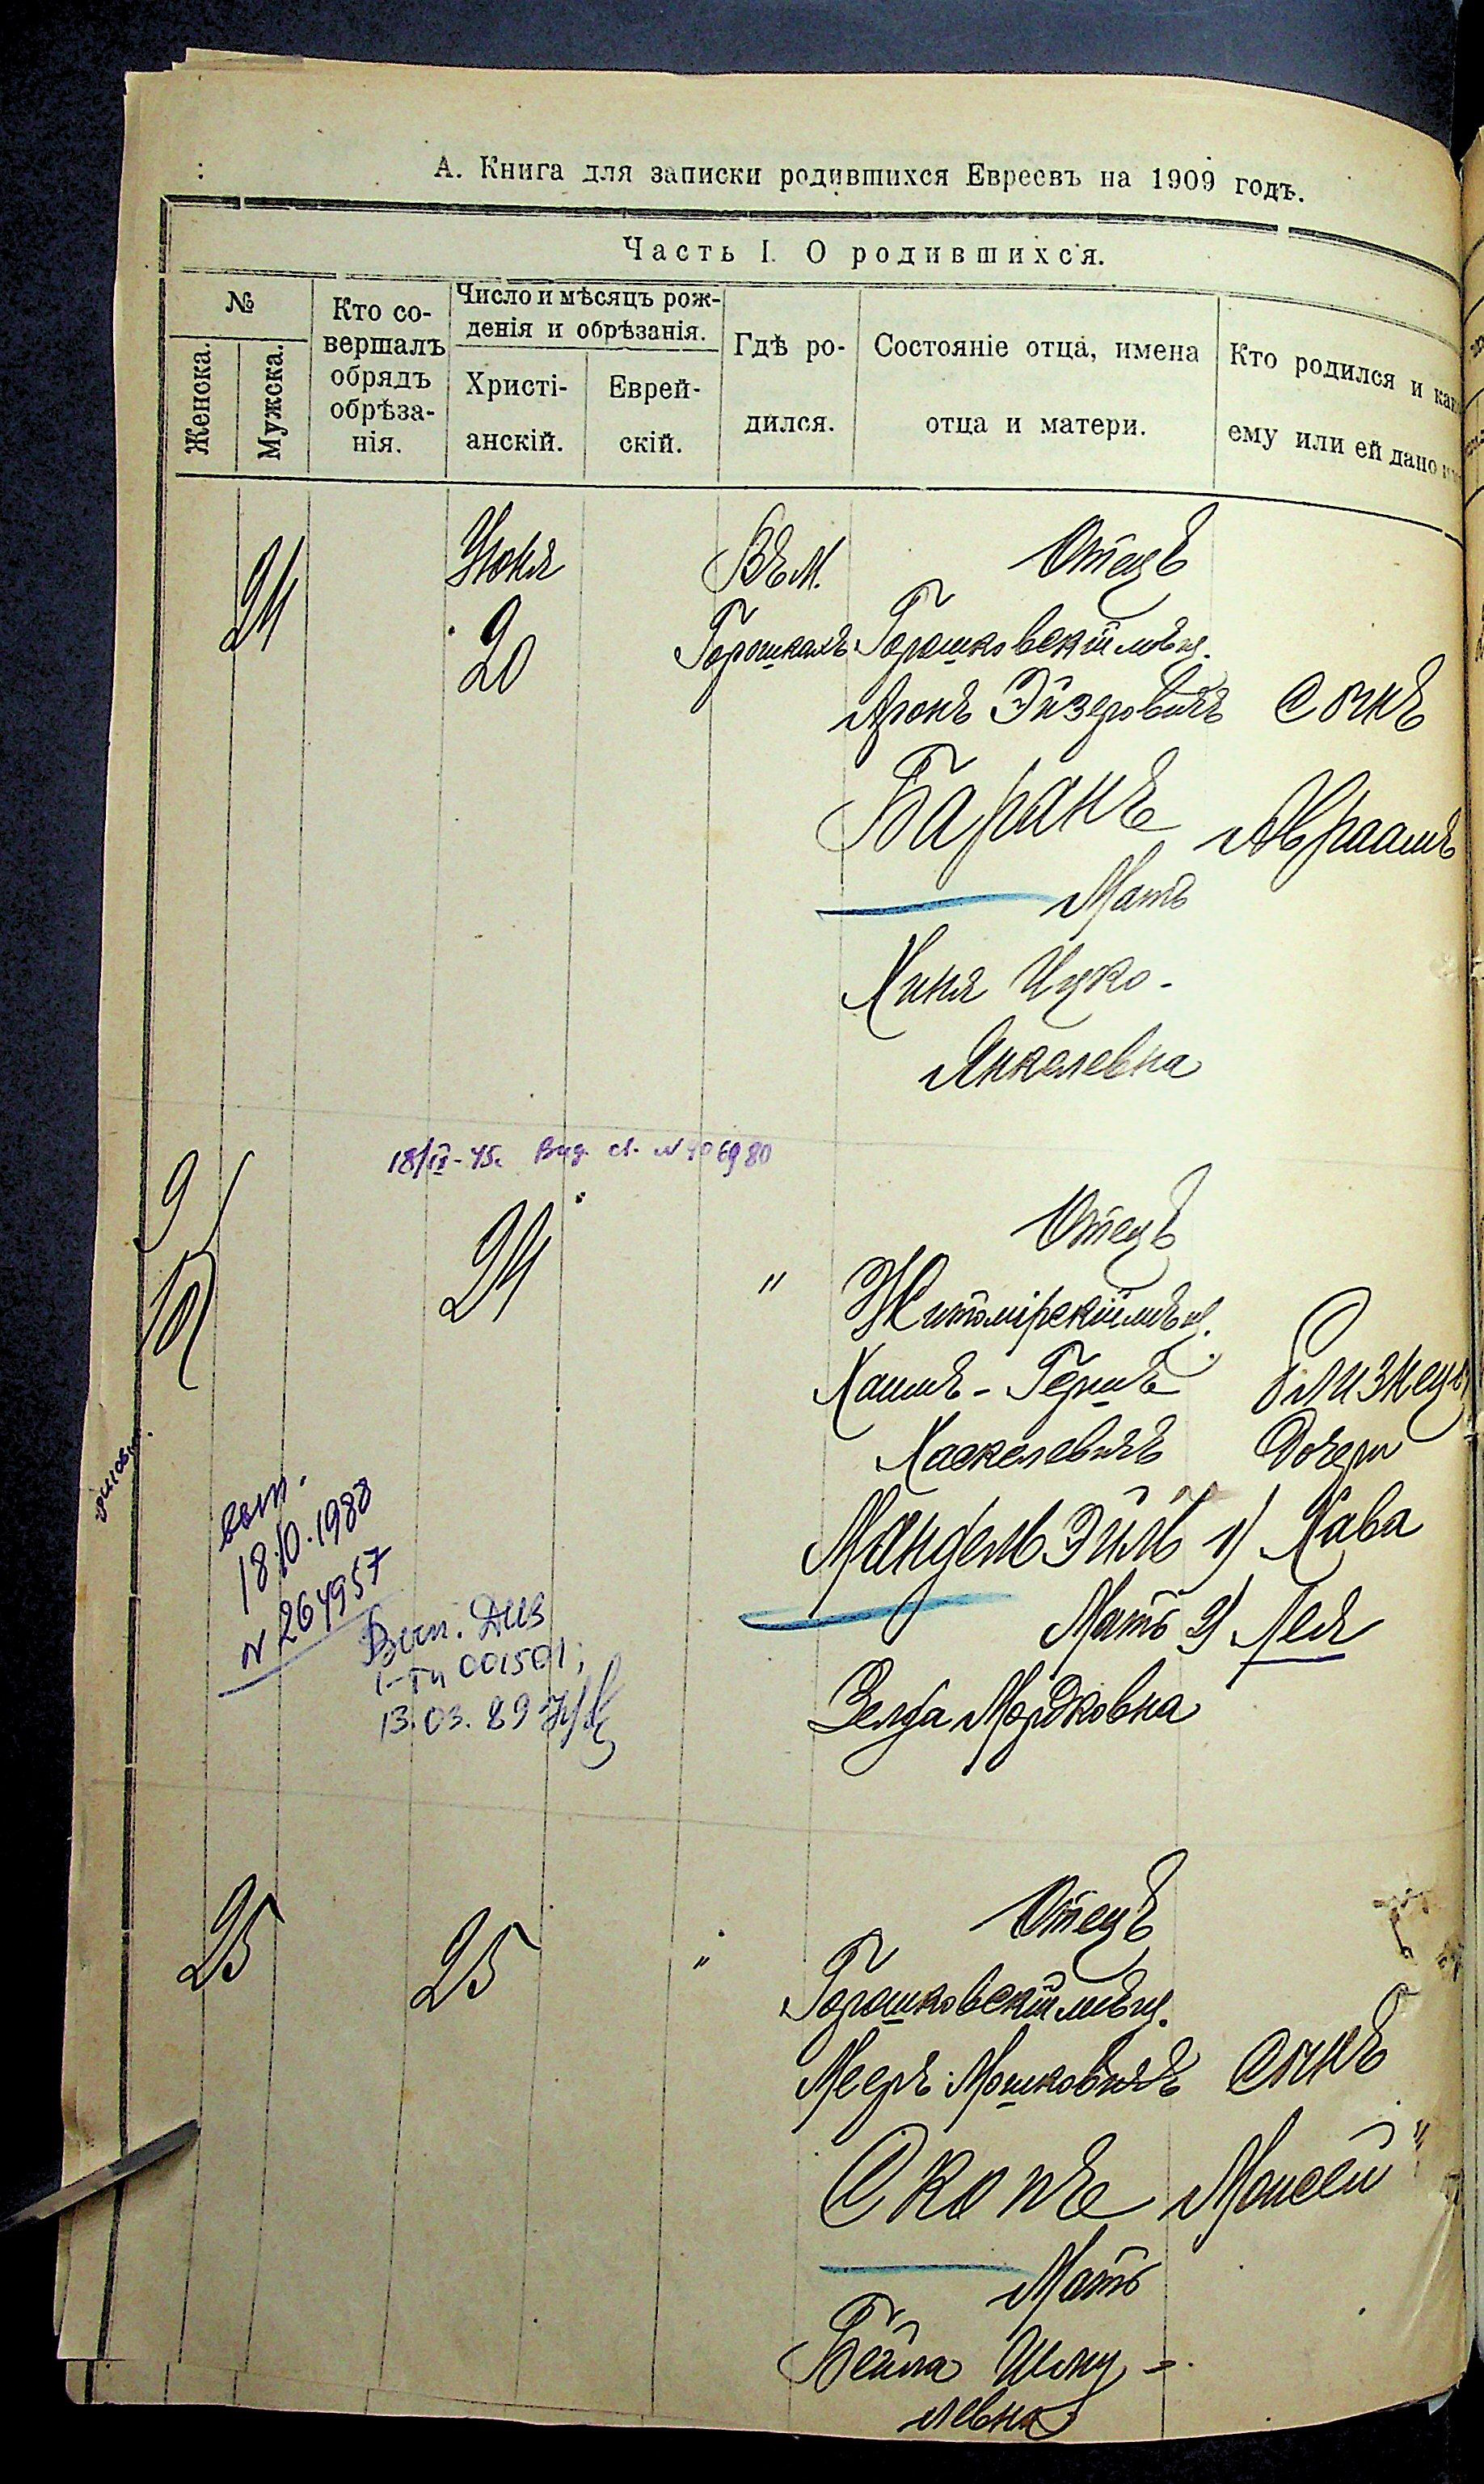 А. Книга для записки родившихся Евреевъ на 1909 годъ.
Часть I. О родившихся.
№
Женска.
Мужска.
Кто со-
вершалъ
обрядъ
обрѣза-
нія.
Число и мѣсяцъ рож-
денія и обрѣзанія.
Христі-
анскій.
Еврей-
скій.
Гдѣ ро-
дился.
Состояніе отца, имена
отца и матери.
Кто родился и
ему или ей дано
24
Іюня
20
Въ м.
Горошкахъ
Отецъ
Горошковскій мѣщ.
Аронъ Эйзеровичъ
Баранъ
Мать
Хиня Ицко-
Янкелевна
сынъ
Авраамъ
18/IX-45г. Выд. св. № 406980
9
10
24
"
Отецъ
Житомірскій мѣщ.
Хаимъ-Гершъ
Хаскелевичъ
Мандель Эйль
Мать
Зелда Мордковна
близнецы
Дочери
1) Хава
2) Лея
вып.
18.10.1988
№ 264957
001501;
13.03.89
25
25
"
Отецъ
Горошковскій мѣщ.
Мееръ Мошковичъ
Скопъ
Мать
Бейла Шму-
левна
сынъ
Моисей